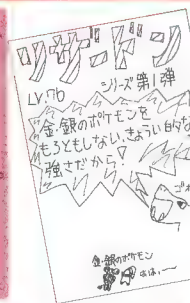 リザードン
シリーズ第1弾
LV.76
金・銀のポケモンを
もろともしない、きょうい的な
強さだから!
金・銀のポケモン